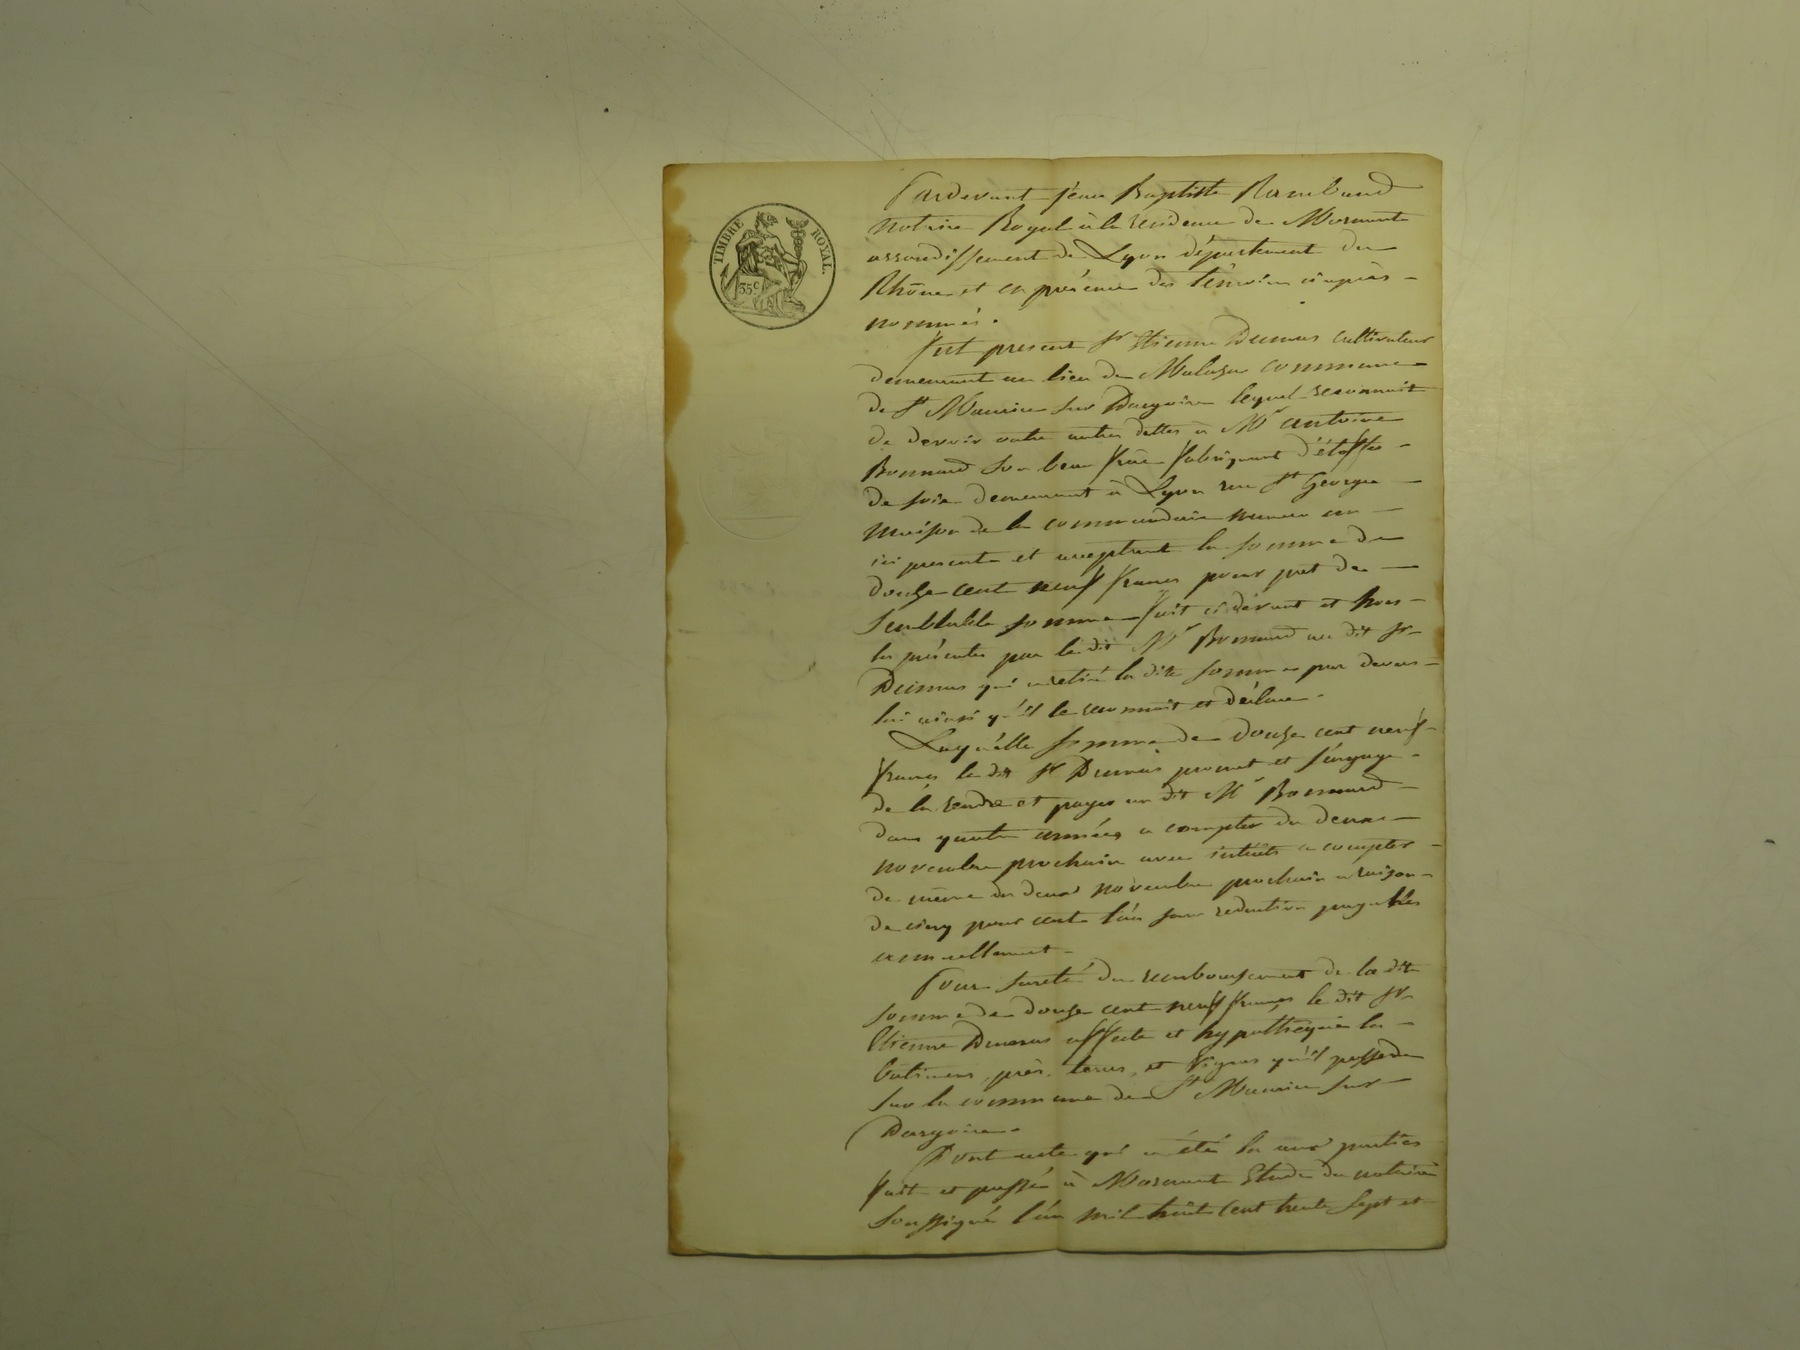 TIMBRE ROYAL.
35c
Pardevant jean Baptiste Rambaud
notaire Royal à la residence de Mornant
arrondissement de Lyon département du
Rhône et en présence des témoins ci après
nommés.
fut present Sr Etienne Dumas cultivateur
demeurant au lieu de commune
de St Maurice sur Dargoire lequel reconnait
de devoir outre autres dettes à Mr antoine
Bonnard son beau frère fabriquant d'étoffes
de soie demeurant à Lyon rue St George
maison de la commanderie numero un
ici presente et acceptant la somme de
douze cent neuf francs pour pret de
semblable somme fait ci devant et hors
les présentes par le dit Mr Bonnard au dit Sr
Dumas qui a retiré la dite somme par devers
lui ainsi qu'il le reconnait et déclare.
Laquelle somme de douze cent neuf
francs le dit Sr Dumas promet et s'engage
de la rendre et payer au dit Mr Bonnard
dans quatre années a compter du deux
novembre prochain avec intérêts a compter
de même du deux novembre prochain a raison
de cinq pour cent l'an sans reduction payables
annuellement
Pour sureté du remboursement de la dite
somme de douze cent neuf francs le dit Sr
Etienne Dumas affecte et hypothèque les
batimens, près, terres, et vignes qu'il possede
sur la commune de St Maurice sur
Dargoire.
Dont acte qui a été lu aux parties
fait et passé à Mornant Etude du notaire
soussigné l'an mil huit cent trente sept et